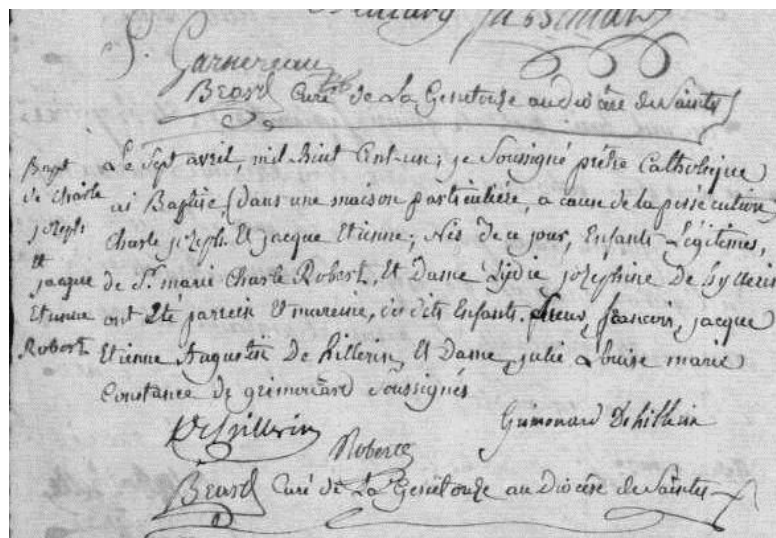 S. Garnereau
Beard Curé de La Genetouze au Diocèse de Saintes
Bapt
de Charle
jozeph
et
jacque
Etienne
Robert
Le Sept avril, mil huit Cent-un; je Soussigné prétre Catholique
ai Baptisé, (dans une maison particuliére, a cause de la persécution)
Charle jozeph. Et jacque Etienne; Nés de ce jour, Enfants Légitimes,
de Sr. marie Charle Robert, Et Dame Lydie jozephine De hyllerin
ont été parrein Et mareine, des dits Enfants. françois, jacque
Etienne Augustin De hillerin, Et Dame, julie Louise marie
Constance de grimouard Soussignés
De hillerin
Grimouard De hillerin
Robert
Beard Curé de La Genetouze au Diocèse de Saintes